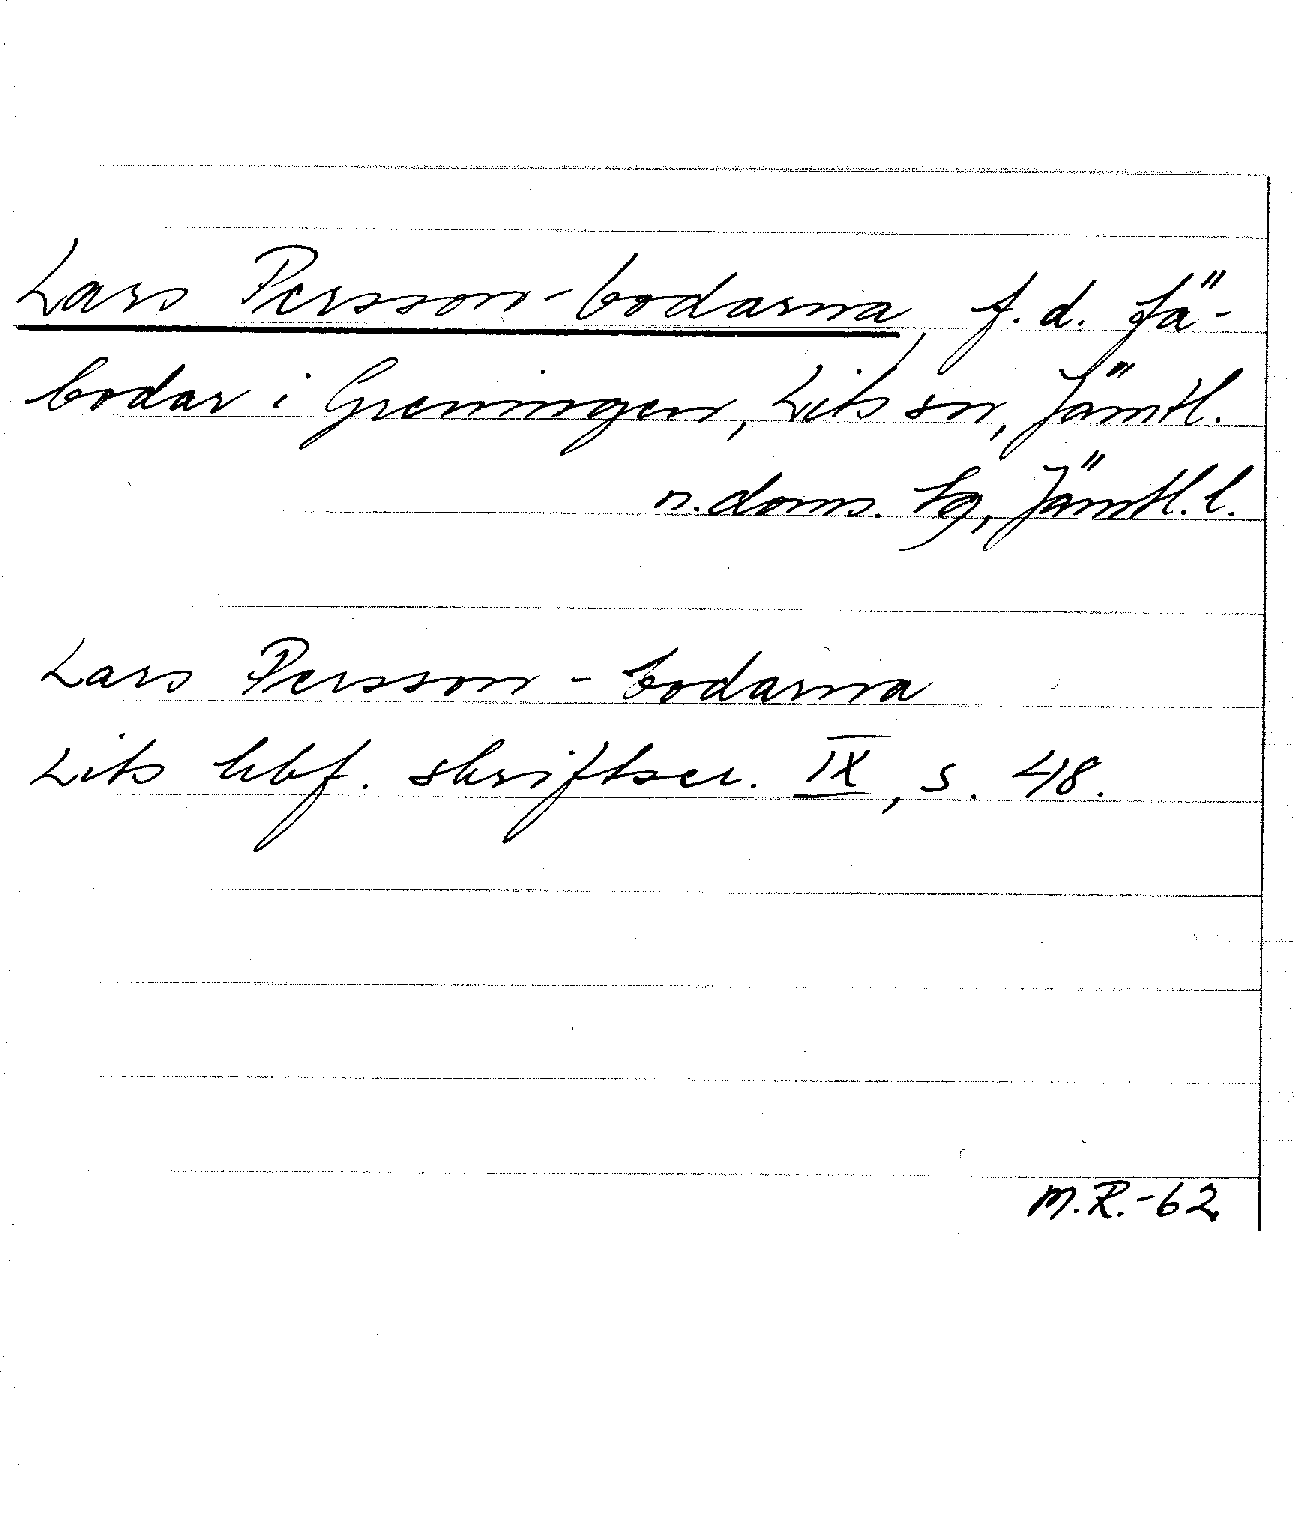 Lars Persson-bodarna, f.d. fä-
bodar i Greningen, Lits sn, Jämtl.
n. doms. tg, Jämtl. l.
Lars Persson-bodarna
Lits hbf. skriftser. IX, s. 48.
M.R.-62